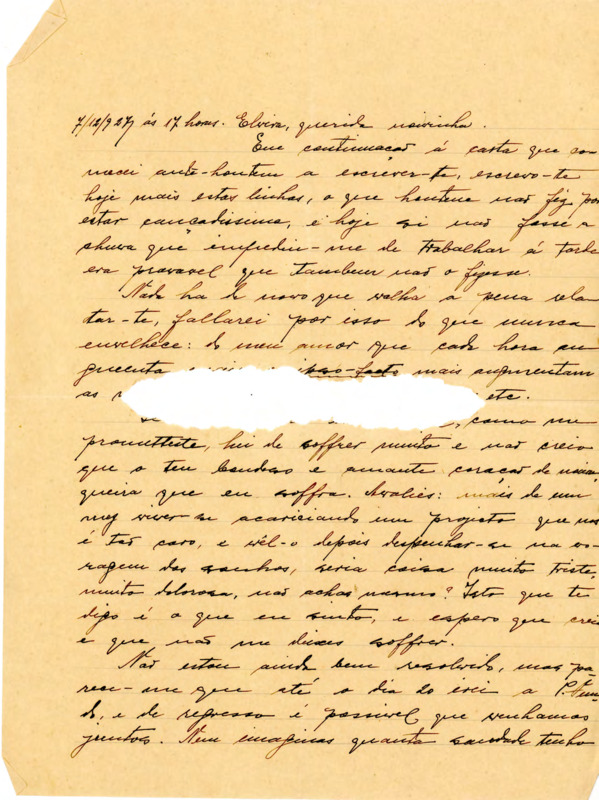 7/12/927 ás 17 horas. Elvira, querida noivinha.
Em continuação á carta que co-
mecei ante-hontem a escrever-te, escrevo-te
hoje mais estas linhas, o que hontem não fiz por
estar cançadissimo, e hoje si não fosse a
chuva que impediu-me de trabalhar á tarde
era provavel que tambem não o fizesse.
Nada ha de novo que valha a pena rela-
tar-te, fallarei por isso do que nunca
envelhece: do meu amor que cada hora au-
gmenta ipso-facto mais augmentam
as etc.
como me
prometteste, hei de soffrer muito e não creio
que o teu bondoso e amante coração de noiva
queira que eu soffra. Avalies: mais de um
mez viver-se acariciando um projecto que nos
é tão caro, e vêl-o depois despenhar-se na vo-
ragem dos sonhos, seria coisa muito triste,
muito dolorosa, não achas mesmo? Isto que te
digo é o que eu sinto, e espero que creias
e que não me deixes soffrer.
Não estou ainda bem resolvido, mas pa-
rece-me que até o dia 20 irei a
do, e de regresso é possivel que venhamos
juntos. Nem imaginas quanta saudade tenho